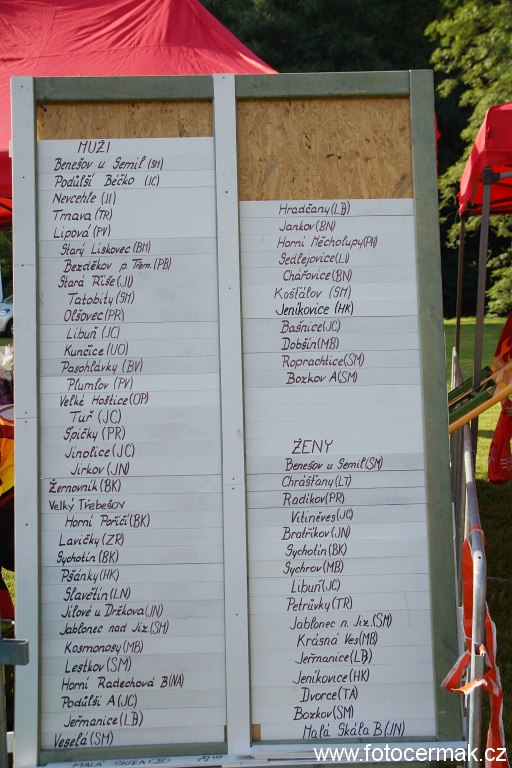 MUŽI
Benešov u Semil (SM)
Podůlší Béčko (JC)
Nevcehle (JI)
Trnava (TR)
Lipová (PV)
Starý Lískovec (BM)
Bezděkov p. Třem. (PB)
Stará Říše (JI)
Tatobity (SM)
Olšovec (PR)
Libuň (JC)
Kunčice (UO)
Pasohlávky (BV)
Plumlov (PV)
Velké Hoštice (OP)
Tuř (JC)
Špičky (PR)
Jinolice (JC)
Jirkov (JN)
Žernovník (BK)
Velký Třebešov
Horní Poříčí (BK)
Lavičky (ZR)
Sychotín (BK)
Pšánky (HK)
Slavětín (LN)
Jílové u Držkova (JN)
Jablonec nad Jiz. (SM)
Kosmonosy (MB)
Lestkov (SM)
Horní Radechová B (NA)
Podůlší A (JC)
Jeřmanice (LB)
Veselá (SM)
MALÁ SKÁLA
Hradčany (LB)
Jankov (BN)
Horní Měcholupy (PN)
Sedlejovice (LI)
Chářovice (BN)
Košťálov (SM)
Jeníkovice (HK)
Bašnice (JC)
Dobšín (MB)
Roprachtice (SM)
Bozkov A (SM)
ŽENY
Benešov u Semil (SM)
Chrášťany (LT)
Radíkov (PR)
Vitiněves (JC)
Bratříkov (JN)
Sychotín (BK)
Sychrov (MB)
Libuň (JC)
Petrůvky (TR)
Jablonec n. Jiz. (SM)
Krásná Ves (MB)
Jeřmanice (LB)
Jeníkovice (HK)
Dvorce (TA)
Bozkov (SM)
Malá Skála B (JN)
www.fotocermak.cz